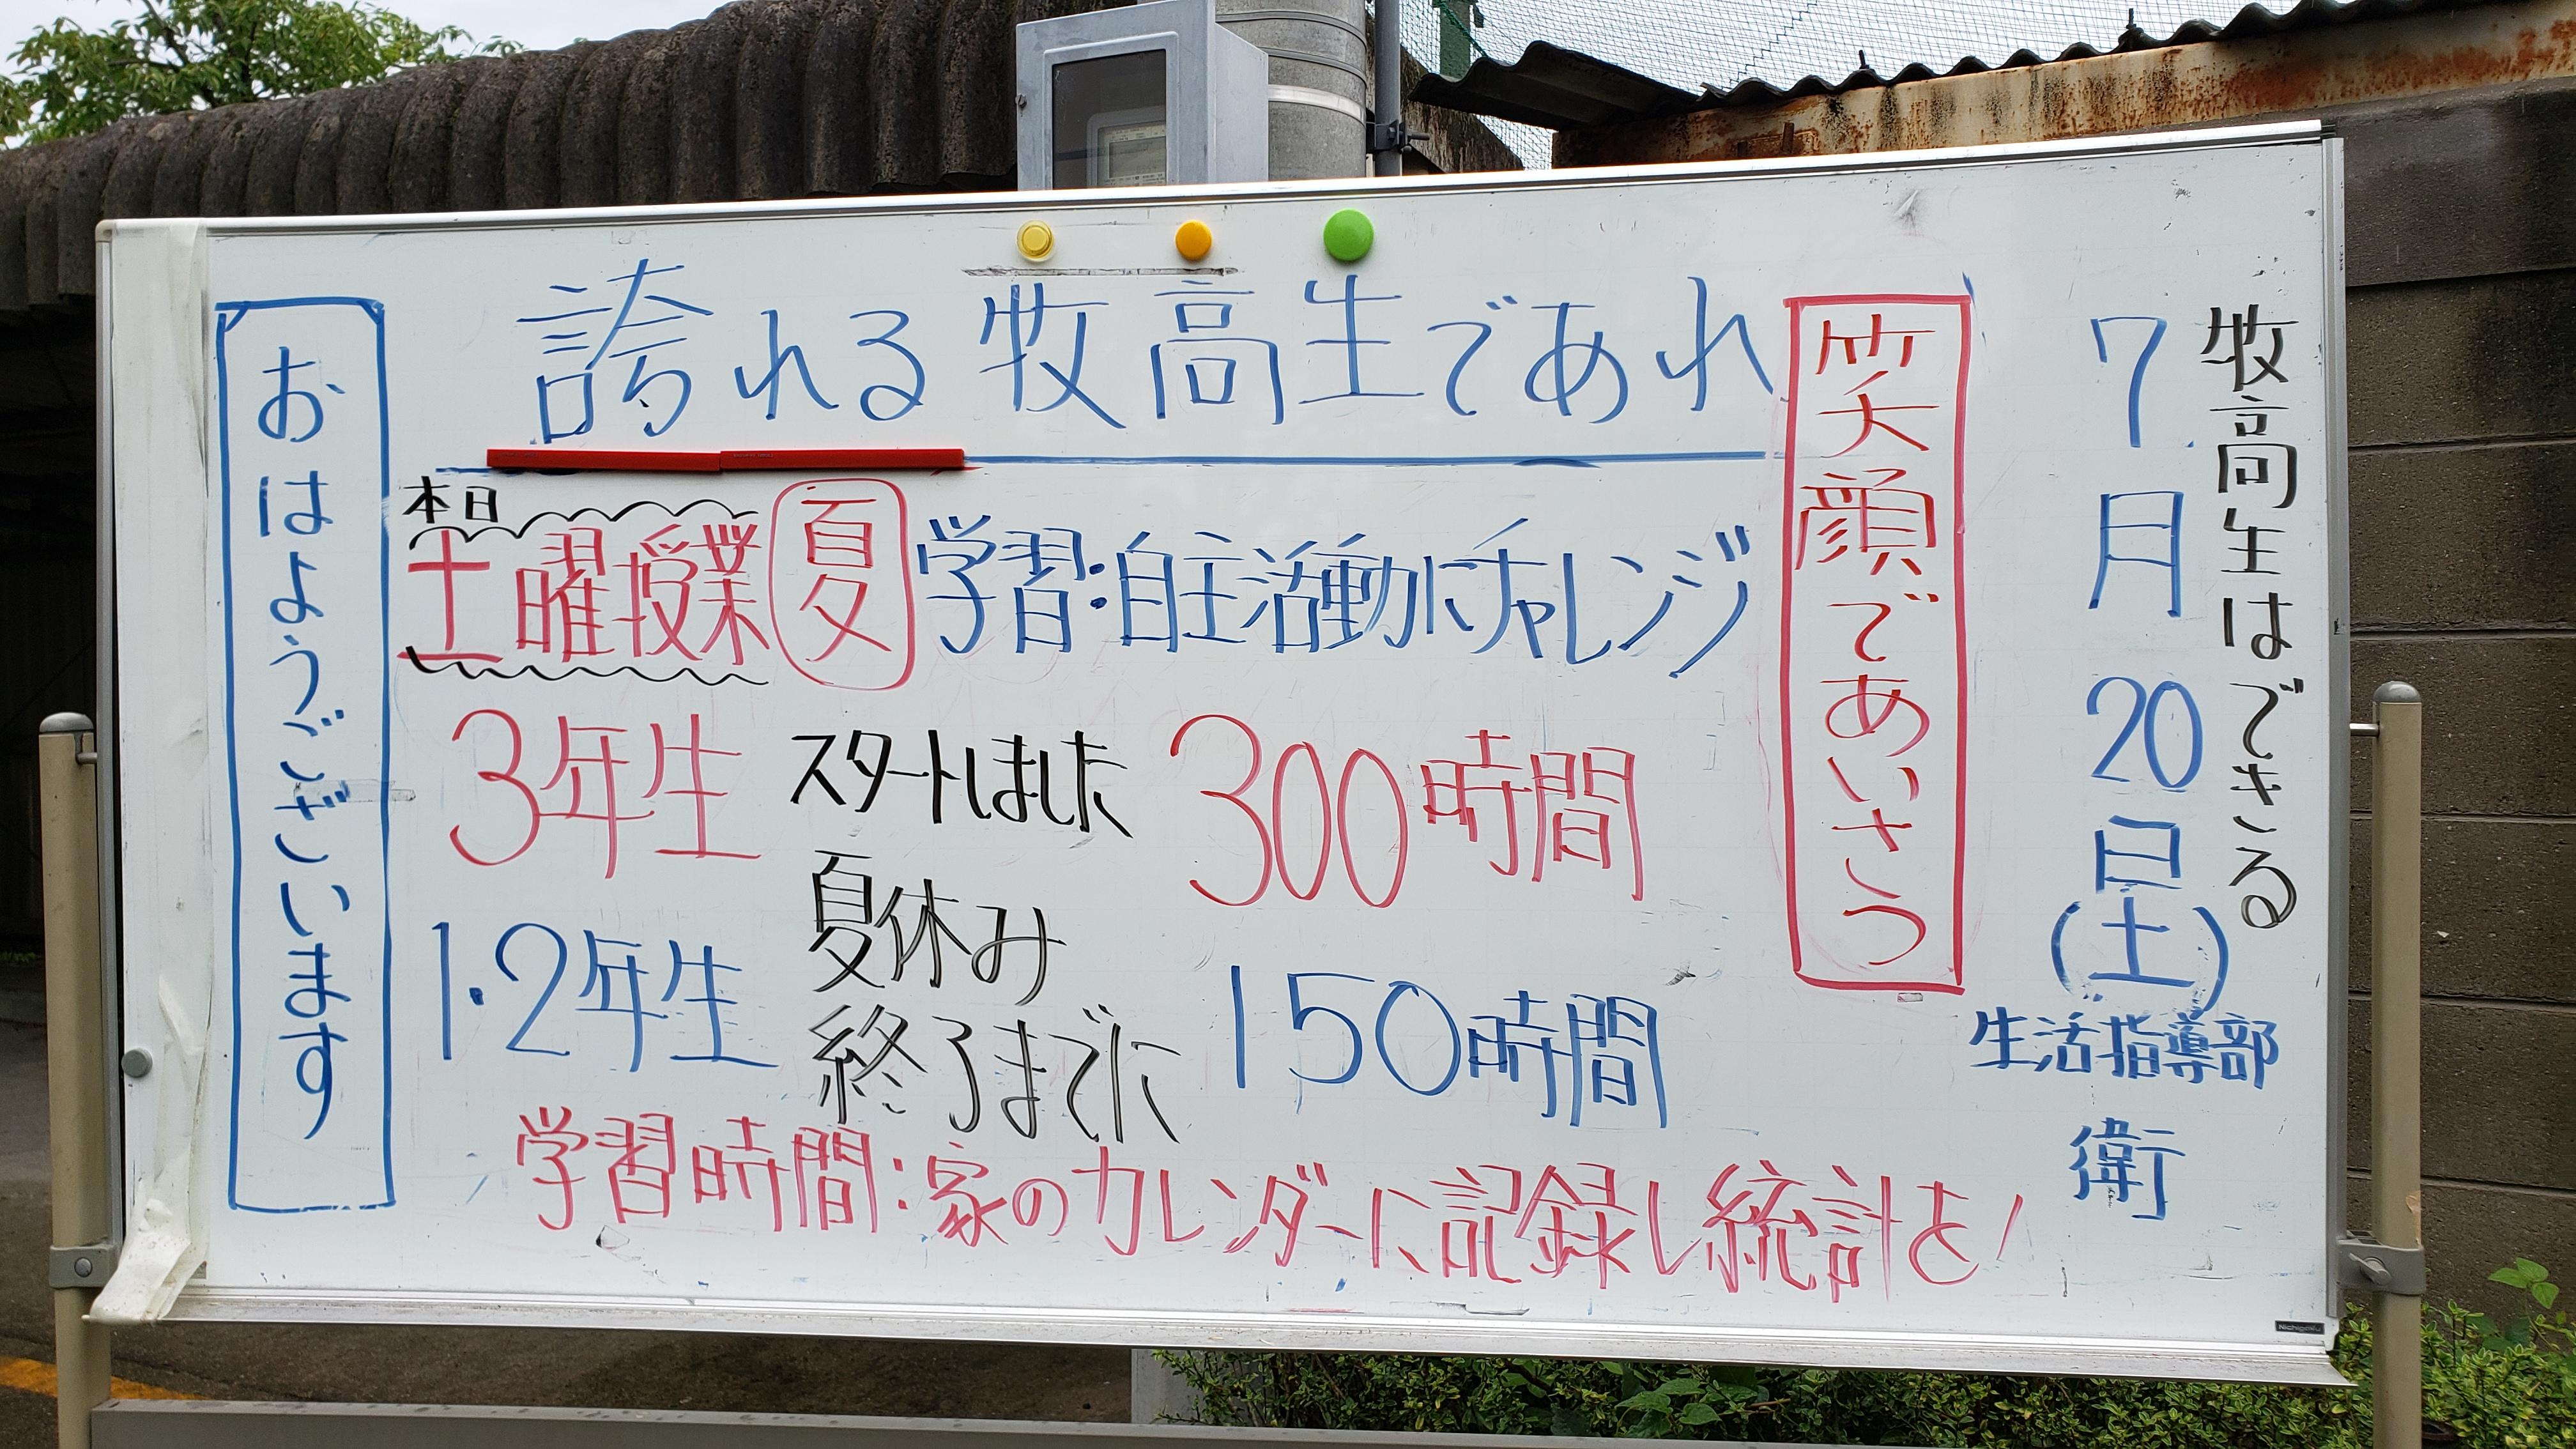 牧高生はできる
7月20日(土)
生活指導部
衛
笑顔であいさつ
誇れる牧高生であれ
本日
土曜授業 夏 学習・自主活動にチャレンジ
3年生 スタートしました 300時間
夏休み
1・2年生 終了までに 150時間
学習時間:家のカレンダーに記録し統計を!
おはようございます
Nichigaku